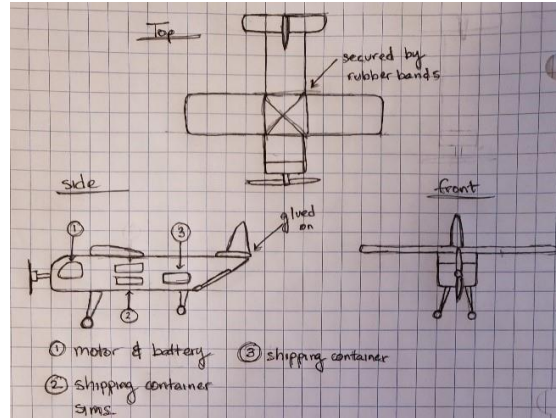 Top
secured by
rubber bands
side
front
glued
on
① ③
②
① motor & battery ③ shipping container
② shipping container
sims